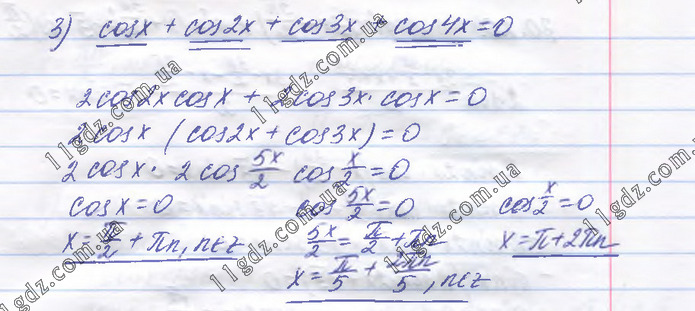 3) cosx + cos2x + cos3x + cos4x = 0
2cos2x cosx + 2cos3x · cosx = 0
2cosx (cos2x + cos3x) = 0
2cosx · 2cos 5x/2 cos x/2 = 0
cosx = 0 cos 5x/2 = 0 cos x/2 = 0
x = π/2 + πn, n∈z 5x/2 = π/2 + πn x = π + 2πn
x = π/5 + 2πn/5, n∈z
11gdz.com.ua
11gdz.com.ua
11gdz.com.ua
11gdz.com.ua
11gdz.com.ua
11gdz.com.ua